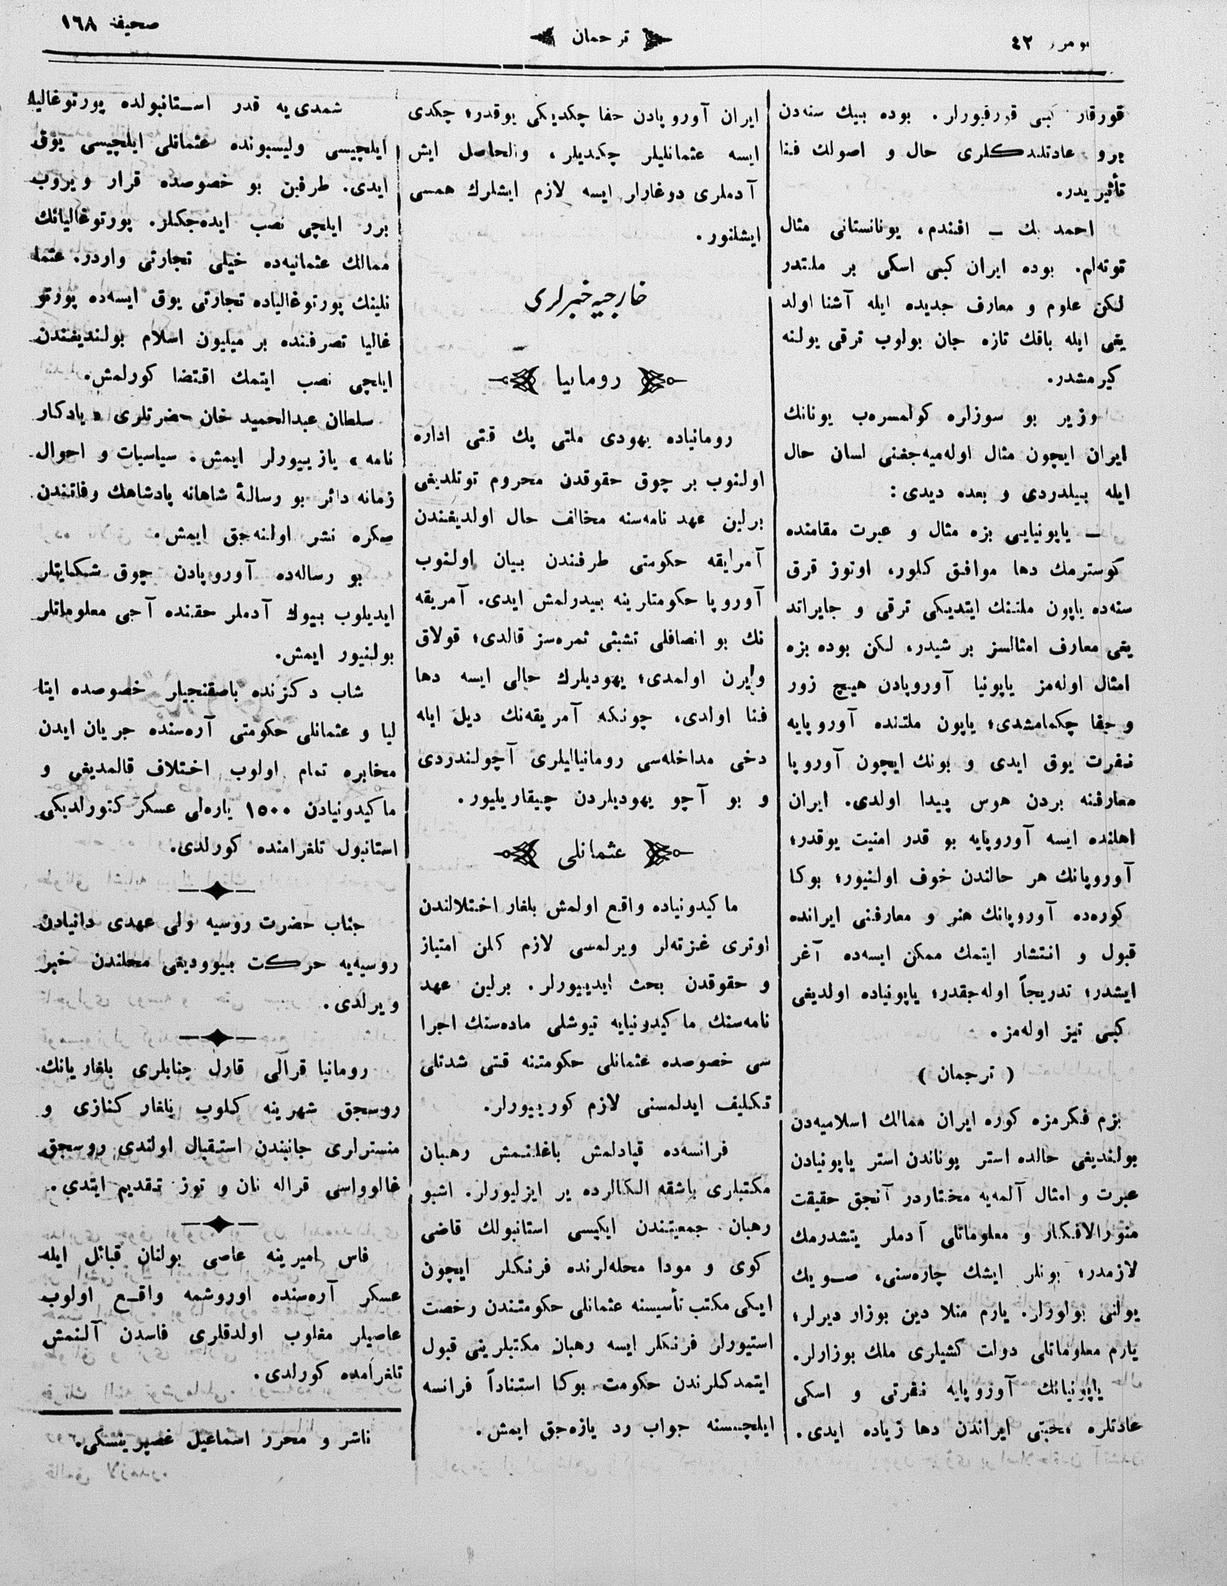 نومرو ٤٢
ترجمان
صحیفه ١٦٨
قورقار کبی قورقیورلر. بوده بیك سنه‌دن
برو عادتلندكلری حال و اصولك فنا
تأثیریدر.
احمد بك ــ افندم، یونانستانی مثال
توته‌لم. بوده ایران کبی اسکی بر ملتدر
لكن علوم و معارف جدیده ایله آشنا اولد
یغی ایله باقك تازه جان بولوب ترقی یولنه
کیرمشدر.
وزیر بو سوزلره کولمسره‌ب یونانك
ایران ایچون مثال اوله‌میه‌جغنی لسان حال
ایله بیلدردی و بعده دیدی:
ــ یاپونیایی بزه مثال و عبرت مقامنده
کوسترمك دها موافق کلور، اوتوز قرق
سنه‌ده یاپون ملتنك ایتدیکی ترقی و جایراتد
یغی معارف امثالسز بر شیدر، لكن بوده بزه
امثال اوله‌مز یاپونیا آوروپادن هیچ زور
و جفا چکمامشدی؛ یاپون ملتنده آوروپایه
نفرت یوق ایدی و بونك ایچون آوروپا
معارفنه بردن هوس پیدا اولدی. ایران
اهلنده ایسه آوروپایه بو قدر امنیت یوقدر؛
آوروپانك هر حالندن خوف اولنیور؛ بوکا
کوره‌ده آوروپانك هنر و معارفنی ایرانده
قبول و انتشار ایتمك ممکن ایسه‌ده آغر
ایشدر؛ تدریجاً اوله‌جقدر؛ یاپونیاده اولدیغی
کبی تیز اوله‌مز.
( ترجمان )
بزم فکرمزه کوره ایران ممالك اسلامیه‌دن
بولندیغی حالده استر یوناندن استر یاپونیادن
عبرت و امثال آلمه‌یه مختاردر آنجق حقیقت
منورالافکار و معلوماتلی آدملر یتشدرمك
لازمدر؛ بونلر ایشك چاره‌سنی، صویك
یولنی بولورلر. یارم منلا دین بوزار دیرلر؛
یارم معلوماتلی دولت کشیلری ملك بوزارلر.
یاپونیانك آوروپایه نفرتی و اسکی
عادتلره محبتی ایراندن دها زیاده ایدی.
ایران آوروپادن جفا چکدیکی یوقدر؛ چکدی
ایسه عثمانلیلر چکدیلر، والحاصل ایش
آدملری دوغارلر ایسه لازم ایشلرك همسی
ایشلنور.
خارجیه خبرلری
رومانیا
رومانیاده یهودی ملتی پك قتی اداره
اولنوب بر چوق حقوقدن محروم توتلدیغی
برلین عهد نامه‌سنه مخالف حال اولدیغندن
آمرایقه حکومتی طرفندن بیان اولنوب
آوروپا حکومتلرینه بیدرلمش ایدی. آمریقه
نك بو انصافلی تشبثی ثمره‌سز قالدی؛ قولاق
وایرن اولمدی؛ یهودیلرك حالی ایسه دها
فنا اولدی، چونکه آمریقه‌نك دیل ایله
دخی مداخله‌سی رومانیاالیلری آچولندردی
و بو آچو یهودیلردن چیقاریلیور.
عثمانلی
ماکیدونیاده واقع اولمش بلغار اختلالندن
اوتری غزته‌لر ویرلمسی لازم کلمن امتیاز
و حقوقدن بحث ایدییورلر. برلین عهد
نامه‌سنك ماکیدونیایه تیوشلی ماده‌سنك اجرا
سی خصوصده عثمانلی حکومتنه قتی شدتلی
تکلیف ایدلمسنی لازم کورییورلر.
فرانسه‌ده قپادلمش باغلنمش رهبان
مکتبلری باشقه الکالرده یر ایزلیورلر. اشبو
رهبان جمعیتندن ایکیسی استانبولك قاضی
کوی و مودا محله‌لرنده فرنکلر ایچون
ایکی مکتب تأسیسنه عثمانلی حکومتندن رخصت
استیورلر فرنکلر ایسه رهبان مکتبلرینی قبول
ایتمدکلرندن حکومت بوکا استناداً فرانسه
ایلچیسنه جواب رد یازه‌جق ایمش.
شمدی‌یه قدر استانبولده پورتوغالیه
ایلچیسی ولیسبونده عثمانلی ایلچیسی یوق
ایدی. طرفین بو خصوصده قرار ویروب
برر ایلچی نصب ایده‌جکلر. پورتوغالیانك
ممالك عثمانیه‌ده خیلی تجارتی واردر. عثما
نلینك پورتوغالیاده تجارتی یوق ایسه‌ده پورتو
غالیا تصرفنده بر میلیون اسلام بولندیغندن
ایلچی نصب ایتمك اقتضا کورلمش.
سلطان عبدالحمید خان حضرتلری « یادکار
نامه » یازییورلر ایمش. سیاسیات و احوال
زمانه دائر بو رسالهٔ شاهانه پادشاهك وفاتندن
صکره نشر اولنه‌جق ایمش.
بو رساله‌ده آوروپادن چوق شکایتلر
ایدیلوب بیوك آدملر حقنده آجی معلوماتلر
بولنیور ایمش.
شاب دکزنده باصقنجیلر خصوصده ایتا
لیا و عثمانلی حکومتی آره‌سنده جریان ایدن
مخابره تمام اولوب اختلاف قالمدیغی و
ماکیدونیادن ١٥٠٠ یاره‌لی عسکر کتورلدیکی
استانبول تلغرامنده کورلدی.
جناب حضرت روسیه ولی عهدی دانیادن
روسیه‌یه حرکت بیوودیغی محلندن خبر
ویرلدی.
رومانیا قرالی قارل جنابلری بلغاریانك
روسجق شهرینه کلوب بلغار کنازی و
منسترلری جانبندن استقبال اولندی روسجق
غالوواسی قراله نان و توز تقدیم ایتدی.
فاس امیرینه عاصی بولنان قبائل ایله
عسکر آره‌سنده اوروشمه واقع اولوب
عاصیلر مغلوب اولدقلری فاسدن آلنمش
تلغرامده کورلدی.
ناشر و محرر اسماعیل غصپرینسکی.